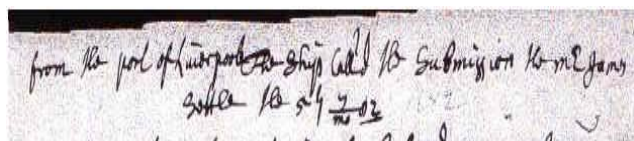 from the port of Liverpoole the Ship Call'd the Submission the mr James
Settle the 5/ 7/mo 82